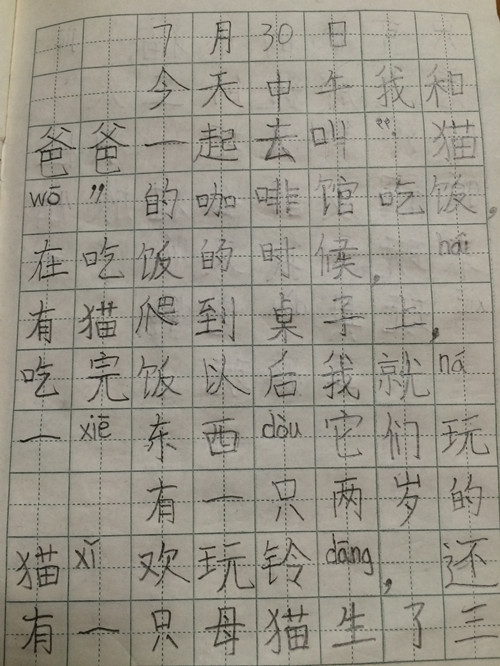 7月30日
今天中午我和
爸爸一起去叫“猫
wō”的咖啡馆吃饭,
在吃饭的时候,hái
有猫爬到桌子上,
吃完饭以后我就ná
一xiē东西dòu它们玩
有一只两岁的
猫xǐ欢玩铃dāng,还
有一只母猫生了三